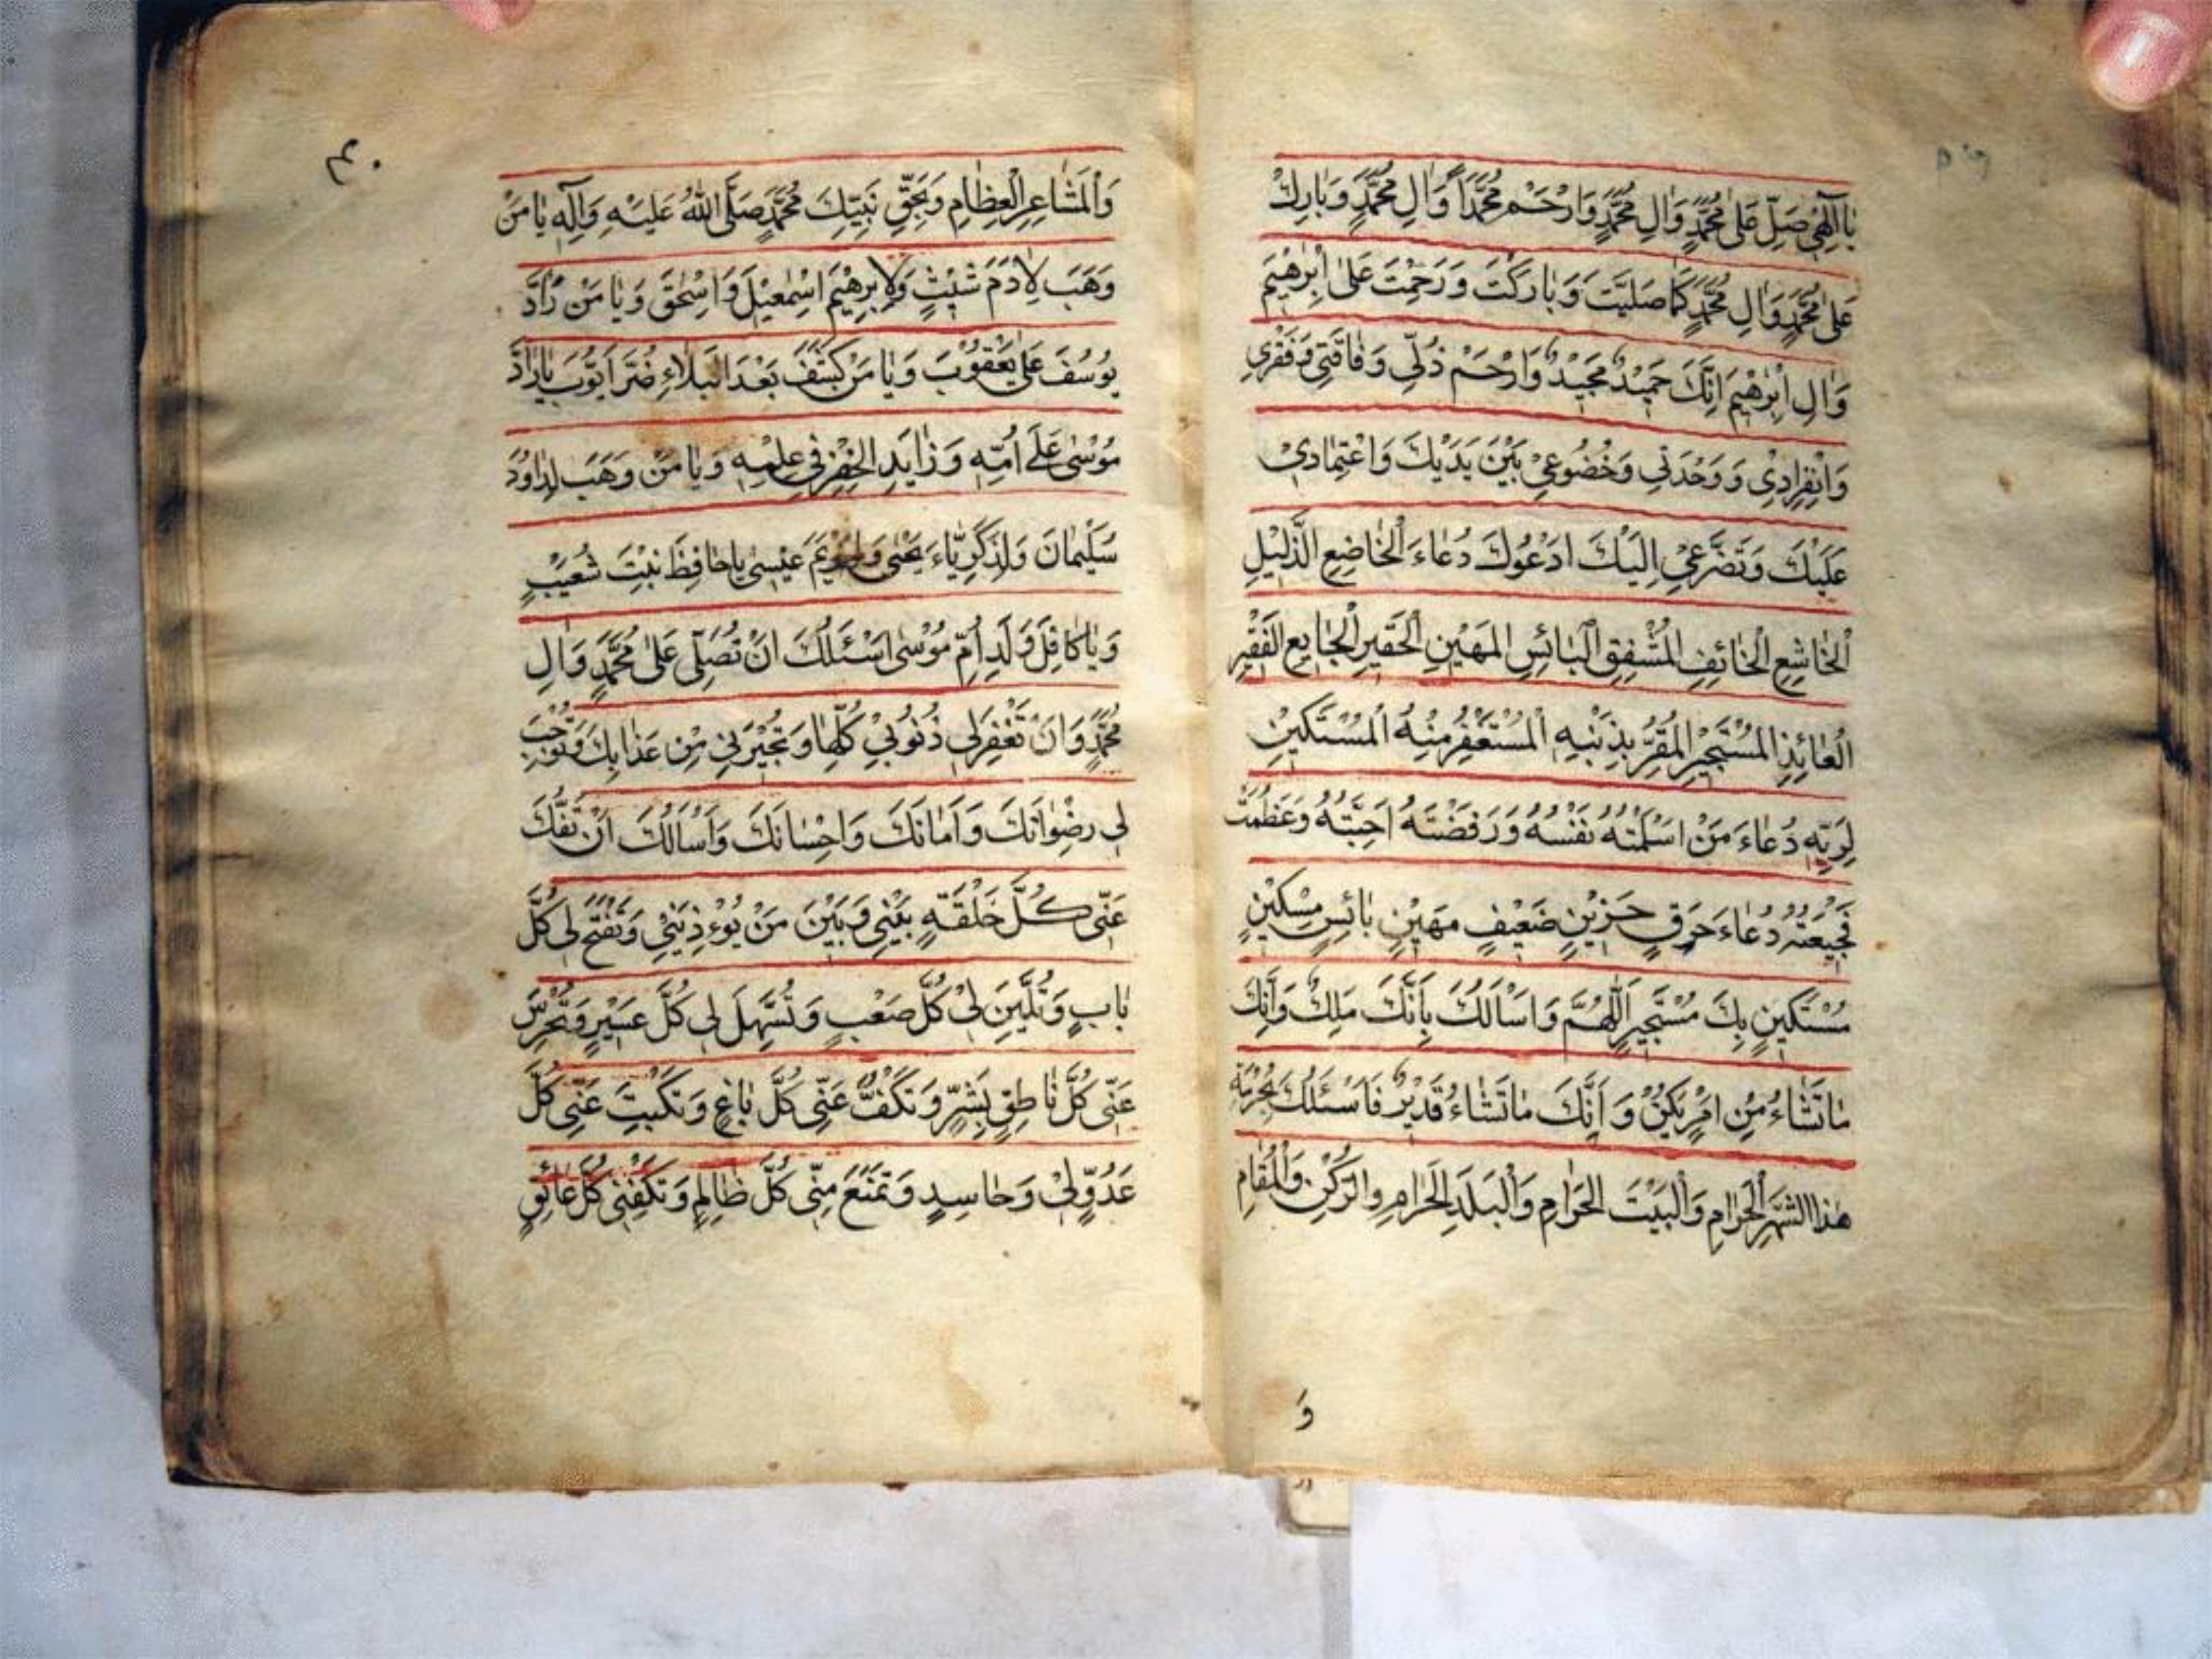 يَا اِلٰهِي صَلِّ عَلٰى مُحَمَّدٍ وَاٰلِ مُحَمَّدٍ وَارْحَمْ مُحَمَّداً وَاٰلِ مُحَمَّدٍ وَبَارِكْ
عَلٰى مُحَمَّدٍ وَاٰلِ مُحَمَّدٍ كَمَا صَلَيَّتَ وَبَارَكْتَ وَرَحِمْتَ عَلٰى اِبْرٰهِيمَ
وَاٰلِ اِبْرٰهِيمَ اِنَّكَ حَمِيْدٌ مَجِيْدٌ وَارْحَمْ ذُلِّي وَفَاقَتِي وَفَقْرِي
وَانْفِرَادِيْ وَوَحْدَتِي وَخُضُوعِيْ بَيْنَ يَدَيْكَ وَاعْتِمَادِيْ
عَلَيْكَ وَتَضَرُّعِيْ اِلَيْكَ ادْعُوكَ دُعَاءَ الْخَاضِعِ الذَّلِيْلِ
الْخَاشِعِ الْخَائِفِ الْمُشْفِقِ الْبَائِسِ الْمَهِيْنِ الْحَقِيرِ الْجَايِعِ الْفَقِيْرِ
الْعَائِذِ الْمُسْتَجِيْرِ الْمُقِرِّ بِذَنْبِهِ الْمُسْتَغْفِرِ مِنْهُ الْمُسْتَكِيْنِ
لِرَبِّهِ دُعَاءَ مَنْ اَسْلَمَتْهُ نَفْسُهُ وَرَفَضَتْهُ اَحِبَّتُهُ وَعَظُمَتْ
فَجِيْعَتُهُ دُعَاءَ حَرِقٍ حَزِيْنٍ ضَعِيْفٍ مَهِيْنٍ بَائِسٍ مِسْكِيْنٍ
مُسْتَكِيْنٍ بِكَ مُسْتَجِيْرٍ اَللّٰهُمَّ وَاَسْاَلُكَ بِاَنَّكَ مَلِكٌ وَاَنَّكَ
مَا تَشَاءُ مِنْ اَمْرٍ يَكُنْ وَاَنَّكَ مَا تَشَاءُ قَدِيْرٌ فَاَسْئَلُكَ بِحُرْمَةِ
هٰذَا الشَّهْرِ الْحَرَامِ وَالْبَيْتَ الْحَرَامِ وَالْبَلَدِ الْحَرَامِ وَالرُّكْنِ وَالْمُقَامِ
وَ
وَالْمَشَاعِرِ الْعِظَامِ وَبِحَقِّ نَبِيِّكَ مُحَمَّدٍ صَلَّى اللّٰهُ عَلَيْهِ وَآلِهِ يَا مَنْ
وَهَبَ لِاٰدَمَ شَيْثٍ وَلِاِبْرٰهِيْمَ اِسْمٰعِيْلَ وَاِسْحٰقَ وَيَا مَنْ رَادَّ
يُوسُفَ عَلٰى يَعْقُوْبَ وَيَا مَنْ كَشَفَ بَعْدَ الْبَلَاءِ ضُرَّ اَيُّوْبَ يَا رَادَّ
مُوْسٰى عَلٰى اُمِّهِ وَزَايَدِ الْخِضْرِ فِي عِلْمِهِ وَيَا مَنْ وَهَبَ لِدَاوُدَ
سُلَيْمَانَ وَلِزَكَرِيَّاءَ يَحْيٰى وَلِمَرْيَمَ عِيْسٰى يَا حَافِظَ بِنْتِ شُعَيْبٍ
وَيَا كَافِلَ وَلَدِ اُمِّ مُوْسٰى اَسْئَلُكَ اَنْ تُصَلِّيَ عَلٰى مُحَمَّدٍ وَاٰلِ
مُحَمَّدٍ وَاَنْ تَغْفِرَ لِي ذُنُوْبِيْ كُلَّهَا وَتُجِيْرَنِي مِنْ عَذَابِكَ وَتُوْجِبَ
لِي رِضْوَانَكَ وَاَمَانَكَ وَاِحْسَانَكَ وَاَسْاَلُكَ اَنْ تَفُكَّ
عَنِّي كُلَّ حَلْقَةٍ بَيْنِي وَبَيْنَ مَنْ يُوْءذِيْنِي وَتَفْتَحَ لِي كُلَّ
بَابٍ وَتُلَيِّنَ لِيْ كُلَّ صَعْبٍ وَتُسَهِّلَ لِي كُلَّ عَسِيْرٍ وَتُخْرِسَ
عَنِّي كُلَّ نَاطِقٍ بِشَرٍّ وَتَكُفَّ عَنِّي كُلَّ بَاغٍ وَتَكْبِتَ عَنِّي كُلَّ
عَدُوٍّ لِيْ وَحَاسِدٍ وَتَمْنَعَ مِنِّي كُلَّ ظَالِمٍ وَتَكْفِنِي كُلَّ عَائِقٍ